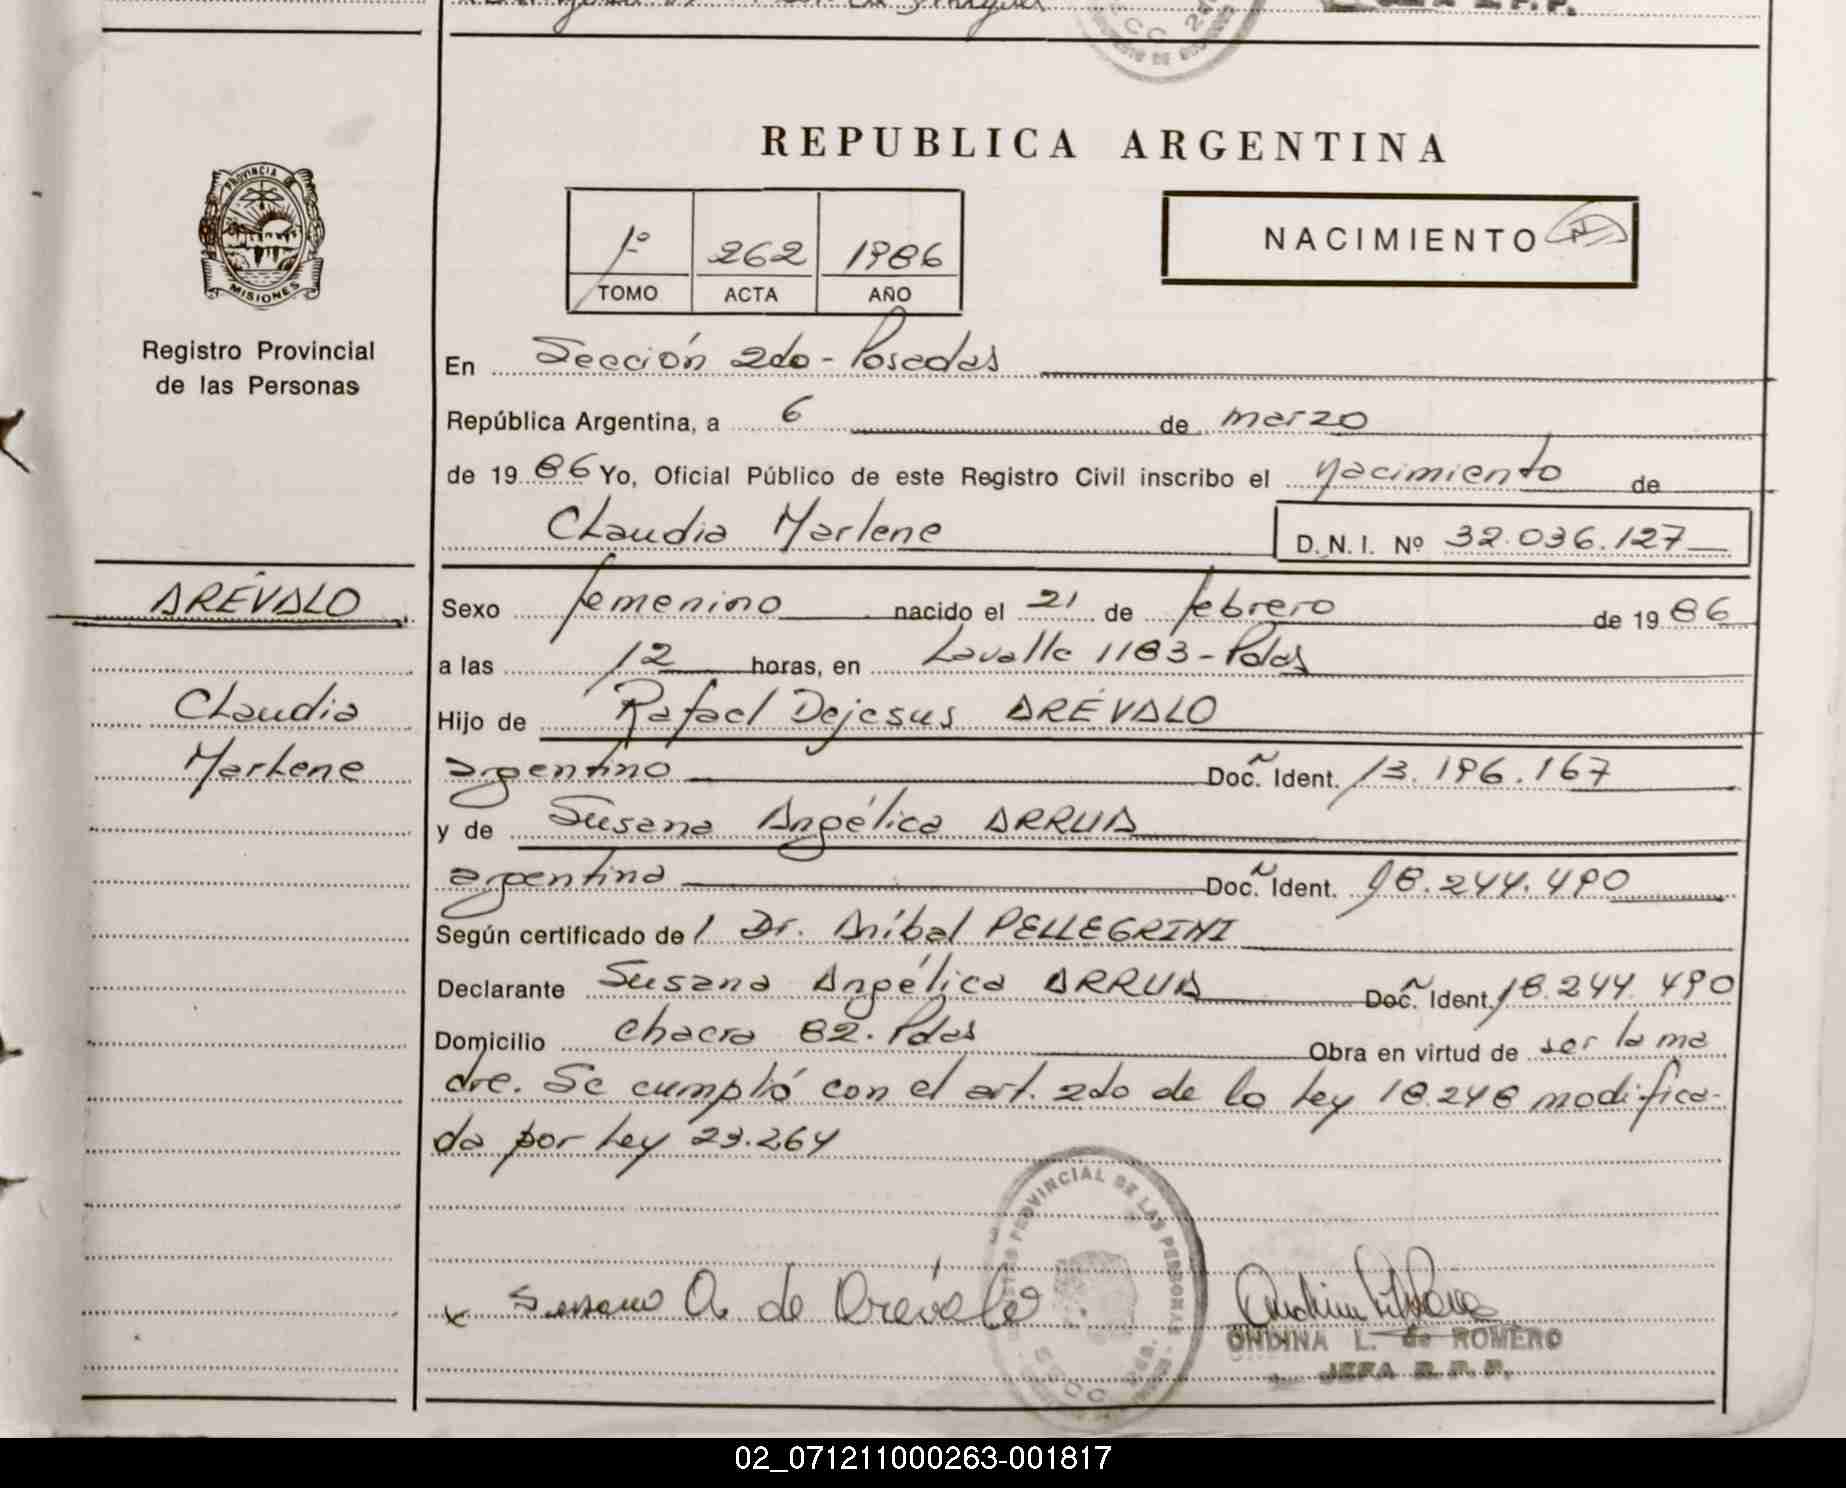 REPUBLICA ARGENTINA
PROVINCIA DE
MISIONES
Registro Provincial
de las Personas
1º 262 1986
TOMO ACTA AÑO
NACIMIENTO
En Sección 2do - Posadas
República Argentina, a 6 de marzo
de 19 86 Yo, Oficial Público de este Registro Civil inscribo el nacimiento de
Claudia Marlene D.N.I. Nº 32.036.127
ARÉVALO
Claudia
Marlene
Sexo femenino nacido el 21 de febrero de 19 86
a las 12 horas, en Lavalle 1183 - Pdas
Hijo de Rafael Dejesus ARÉVALO
argentino Doc. Ident. 13.196.167
y de Susana Angélica ARRUA
argentina Doc. Ident. 18.244.490
Según certificado del Dr. Aníbal PELLEGRINI
Declarante Susana Angélica ARRUA Doc. Ident. 18.244.490
Domicilio chacra 82. Pdas Obra en virtud de ser la ma
dre. Se cumplió con el art. 2do de la Ley 18.248 modifica-
da por Ley 23.264
PROVINCIAL DE LAS PERSONAS
x Susana A. de Arévalo
ONDINA L. de ROMERO
JEFA R.P.P.
02_071211000263-001817